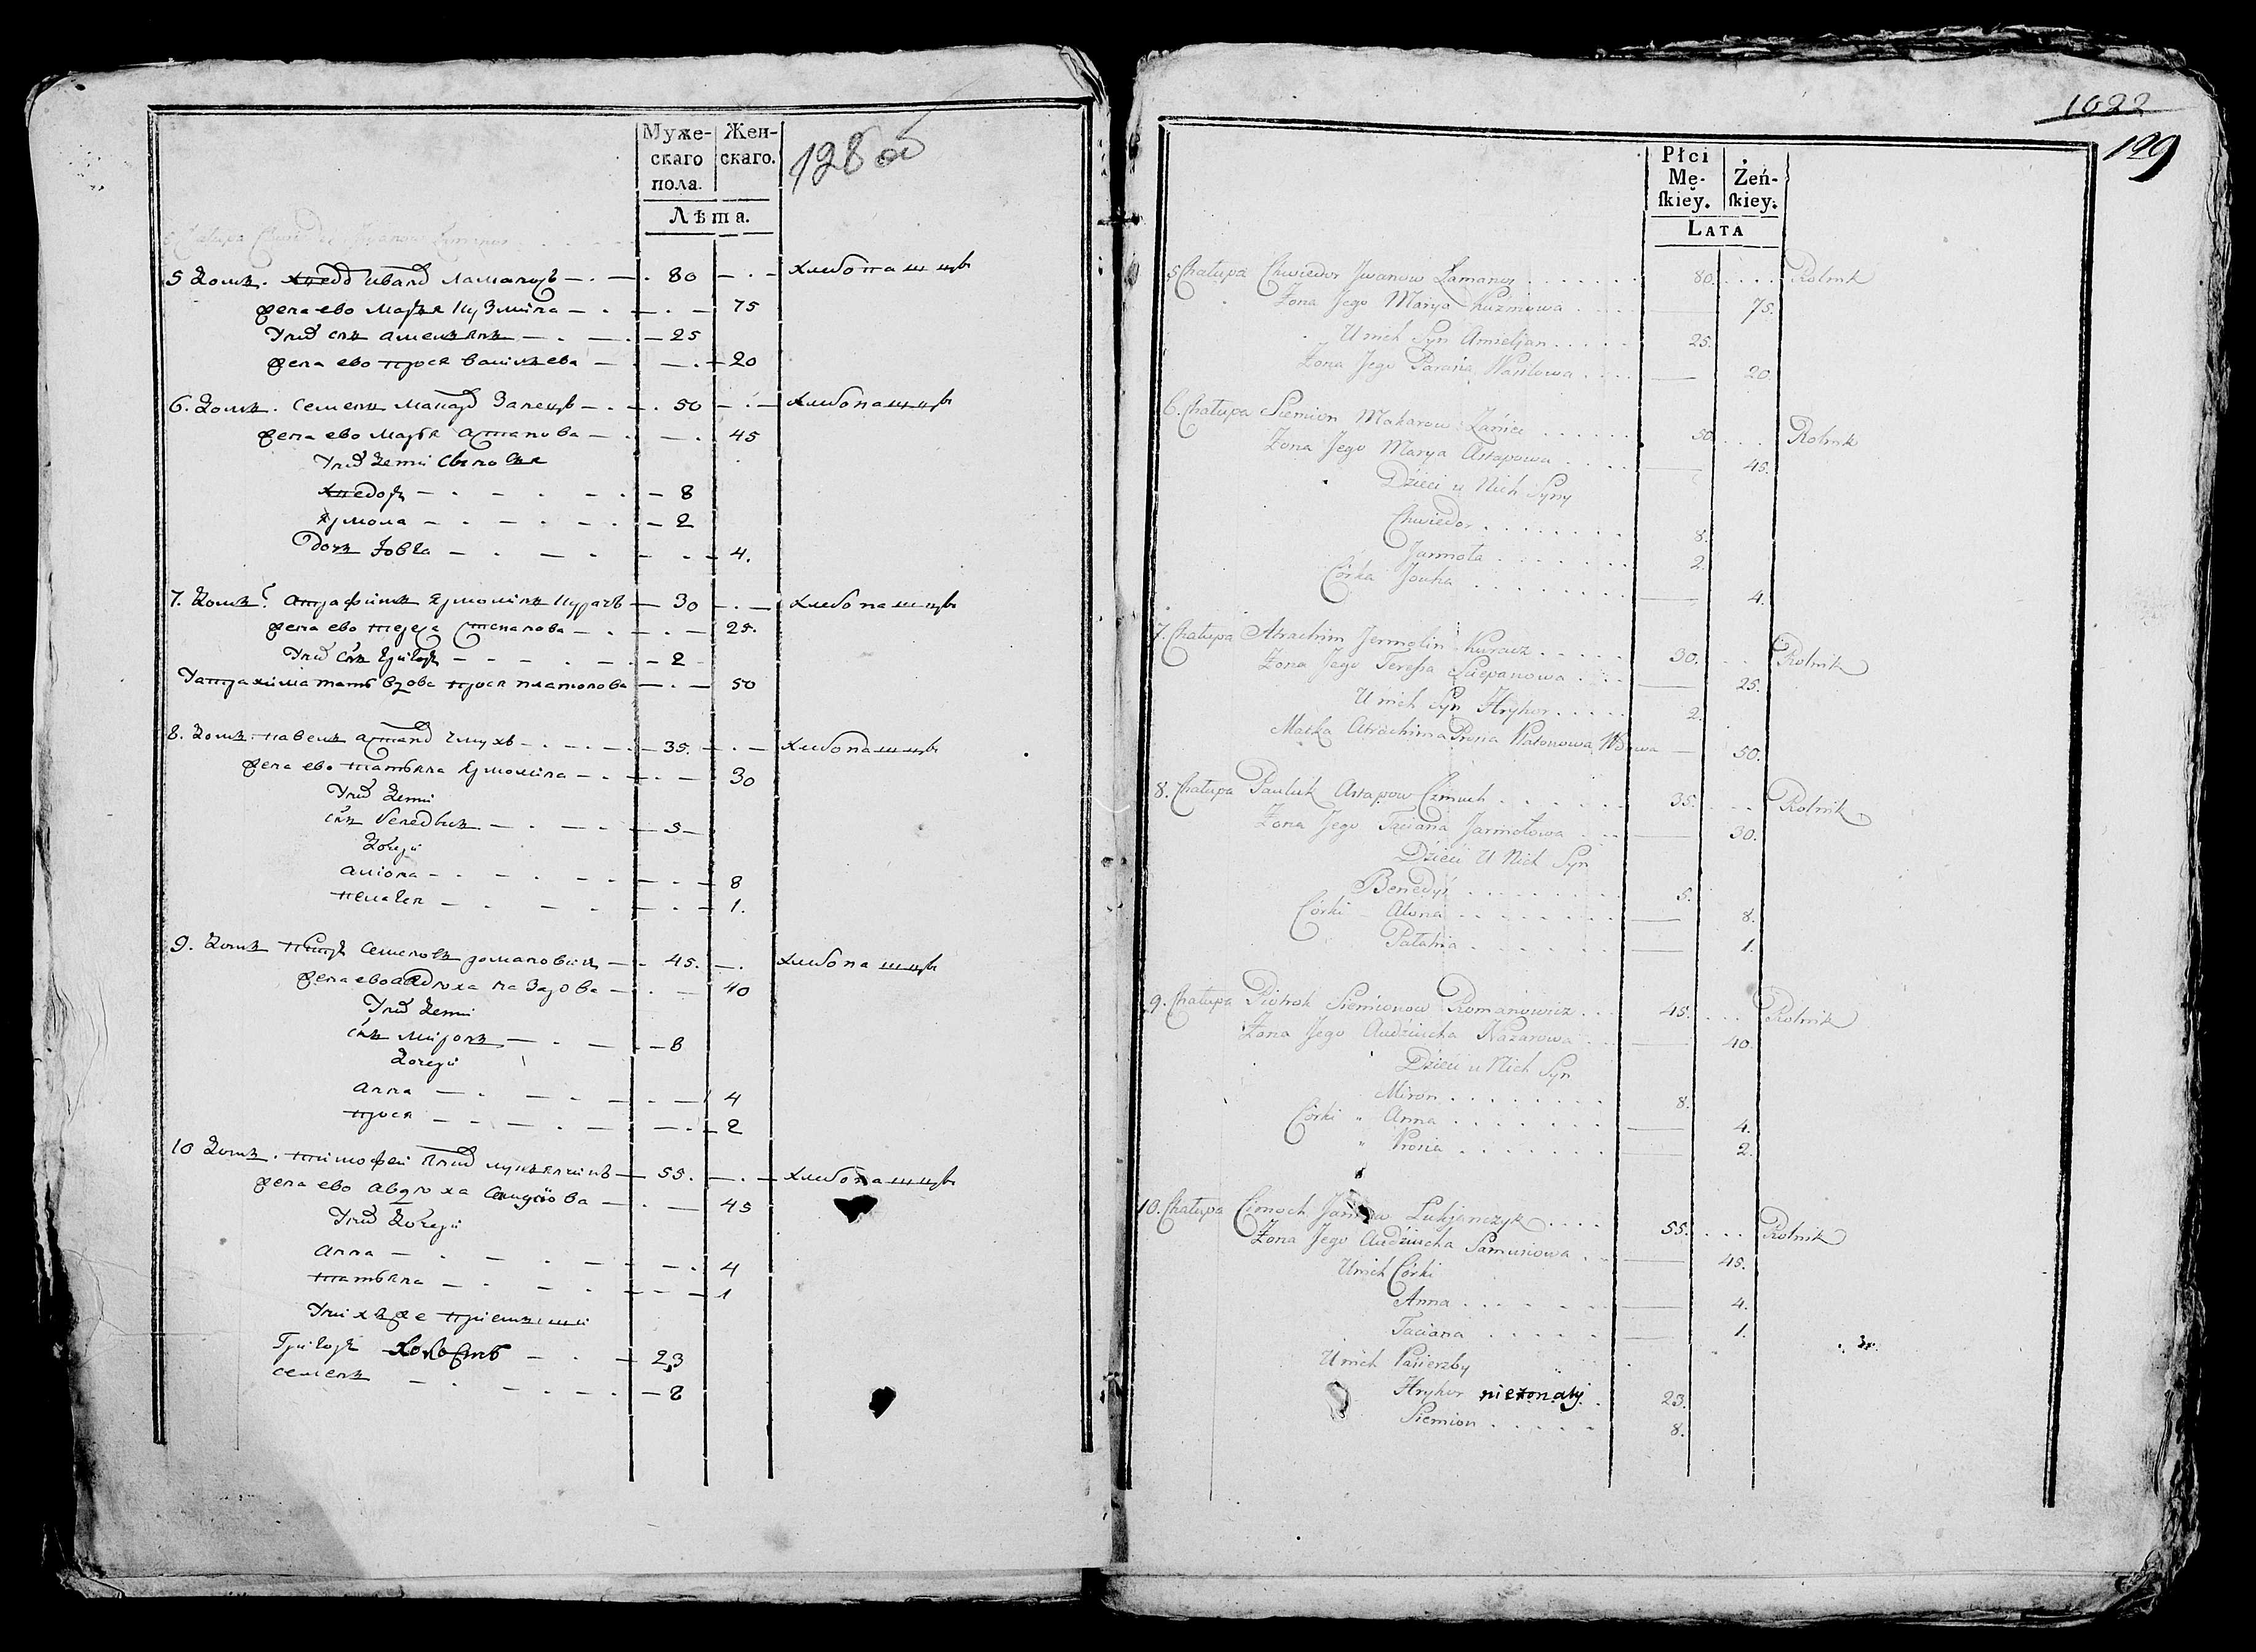 Муже-
скаго
пола.
Жен-
скаго.
Лѣта.
128 об
5 домъ. хведо ивано ламаносъ — 80 — хлѣбопашцъ
жена ево марья кузмина — 75
у нихъ снъ амельянъ — 25
жена ево прося васильева — 20
6. домъ. семенъ макаро занецъ — 50 — хлѣбопашцъ
жена ево марья астапова — 45
у нихъ дети
хведоръ — 8
ярмола — 2
дочь — 4.
7. домъ. ярмолинъ курачъ — 30 — хлѣбопашцъ
жена ево тереса степанова — 25.
у нихъ снъ григоръ — 2
вдова прося платонова — 50
8. домъ. павелъ астапо чмухъ — 35. — хлѣбопашцъ
жена ево татьяна ярмолина — 30
у нихъ дети
снъ — 5
дочери
алiона — 8
пелагея — 1.
9. домъ петръ семеновъ романовичъ — 45. — хлѣбопашцъ
жена ево авдюха назарова — 40
у нихъ дети
снъ миронъ — 8
дочери
анна — 4
прося — 2
10 домъ. тимофеи лукьянчикъ — 55. — хлѣбопашцъ
жена ево авдюха — 45
у нихъ дочери
анна — 4
татьяна — 1
у нихъ же
григоръ холостъ — 23
семенъ — 8
1022
129
Płci
Mę-
ſkiey.
Żeń-
ſkiey.
LATA
5 Chałupa Chwiedor Jwanow Łamanos . . . . 80. . . . Rolnik
Żona Jego Marya Kuzmowa . . . 75.
U nich Syn Amieljan . . . . 25.
Żona Jego Parasia Wasilowa . . . 20.
6. Chałupa Siemion Makarow Zaniec . . . . 50. . . . Rolnik
Żona Jego Marya Astapowa . . . 45.
Dzieci u Nich Syny
Chwiedor . . . . 8.
Jarmoła . . . . 2.
Córka Jouha . . . . 4.
7. Chałupa Atrachim Jermolin Kuracz . . . . 30. . . Rolnik
Żona Jego Teressa Sciepanowa . . . 25.
U nich Syn Hryhor . . . . 2.
Matka Atrachima Prosia Płatonowa Wdowa — 50.
8. Chałupa Pauluk Astapow Czmuch . . . . 35. . . . Rolnik
Żona Jego Taciana Jarmołowa . . . 30.
Dzieci U Nich Syn
Benedyś . . . . 5.
Córki Alona . . . . 8.
Pałahia . . . . 1.
9. Chałupa Piotrok Siemionow Romanowicz . . . 45. . . . Rolnik
Żona Jego Audziucha Nazarowa . . . 40.
Dzieci u Nich Syn
Miron . . . . 8.
Córki " Anna . . . . 4.
" Prosia . . . . 2.
10. Chałupa Cimoch Łukjanczyk . . . . 55. . . . Rolnik
Żona Jego Audziucha Samusiowa . . 45.
U nich Córki
Anna . . . . 4.
Taciana . . . . 1.
U nich Pasierzby
Hryhor nieżonaty . 23.
Siemion . . . . 8.